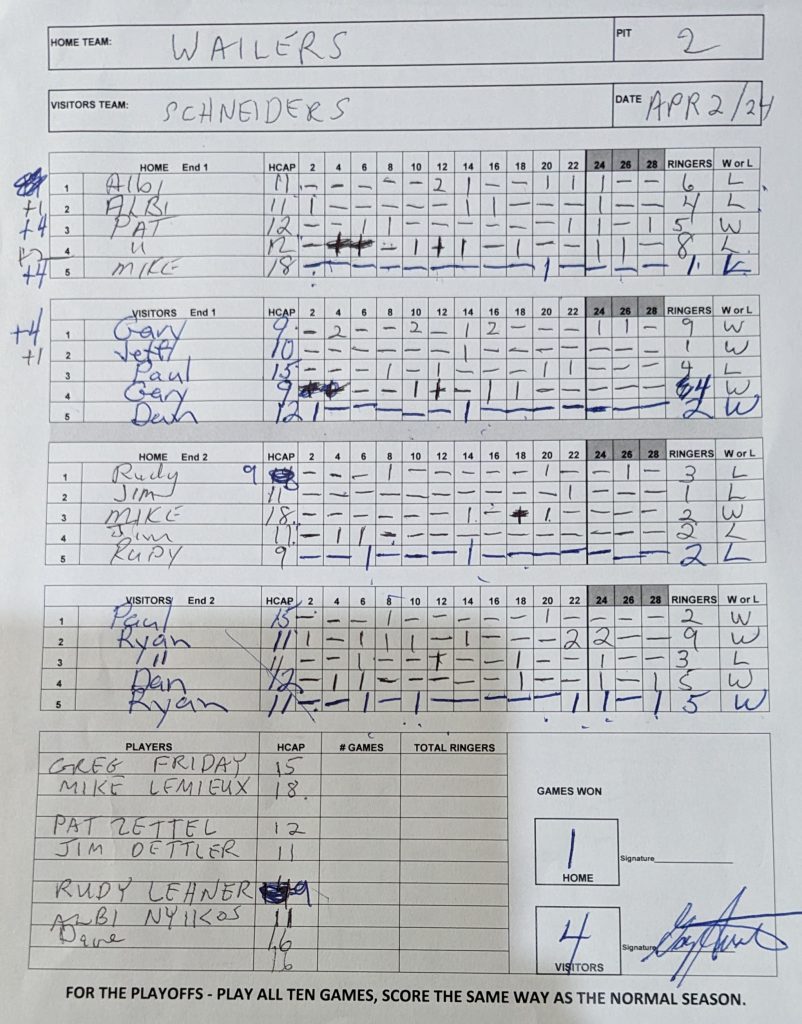 HOME TEAM: WAILERS PIT 2
VISITORS TEAM: SCHNEIDERS DATE APR 2/24
HOME End 1 HCAP 2 4 6 8 10 12 14 16 18 20 22 24 26 28 RINGERS W or L
1 Albi 11 - - - - - 2 1 - - 1 1 1 - - 6 L
+1 2 ALBI 11 1 - - - - - 1 1 - - - 1 - - 4 L
+4 3 PAT 12 - - 1 1 - - - - - - 1 1 - 1 5 W
4 " 12 8 L
+4 5 MIKE 18 - - - - - - - - - 1 - - - - 1 L
VISITORS End 1 HCAP 2 4 6 8 10 12 14 16 18 20 22 24 26 28 RINGERS W or L
+4 1 Gary 9 - 2 - - 2 - 1 2 - - - 1 1 - 9 W
+1 2 Jeff 10 - - - - - - 1 - - - - - - - 1 W
3 Paul 15 - - - 1 1 - - - - 1 1 - - - 4 L
4 Gary 9 4 W
5 Dan 12 1 - - - - - 1 - - - - - - - 2 W
HOME End 2 HCAP 2 4 6 8 10 12 14 16 18 20 22 24 26 28 RINGERS W or L
1 Rudy 9 - - - 1 - - - - - 1 - - 1 - 3 L
2 Jim 11 - - - - - - - - - - 1 - - - 1 L
3 MIKE 18 - - - - - - 1 - + 1 - - - - 2 W
4 Jim 11 - 1 1 - - - - - - - - - - - 2 L
5 RUDY 9 - - 1 - - - 1 - - - - - - - 2 L
VISITORS End 2 HCAP 2 4 6 8 10 12 14 16 18 20 22 24 26 28 RINGERS W or L
1 Paul 15 - - - 1 - - - - - 1 - - - - 2 W
2 Ryan 11 1 - 1 1 1 - 1 - - - 2 2 - - 9 W
3 " 11 - - 1 - - + - - 1 - - 1 - - 3 L
4 Dan 12 - 1 1 - - - - - 1 - - 1 - 1 5 W
5 Ryan 11 - - 1 - 1 - - - - - 1 1 - 1 5 W
PLAYERS HCAP # GAMES TOTAL RINGERS
GREG FRIDAY 15
MIKE LEMIEUX 18
GAMES WON
PAT ZETTEL 12
JIM OETTLER 11
1 Signature
HOME
RUDY LEHNER 9
ALBI NYIKOS 11
Dave 16
4 Signature
VISITORS
FOR THE PLAYOFFS - PLAY ALL TEN GAMES, SCORE THE SAME WAY AS THE NORMAL SEASON.